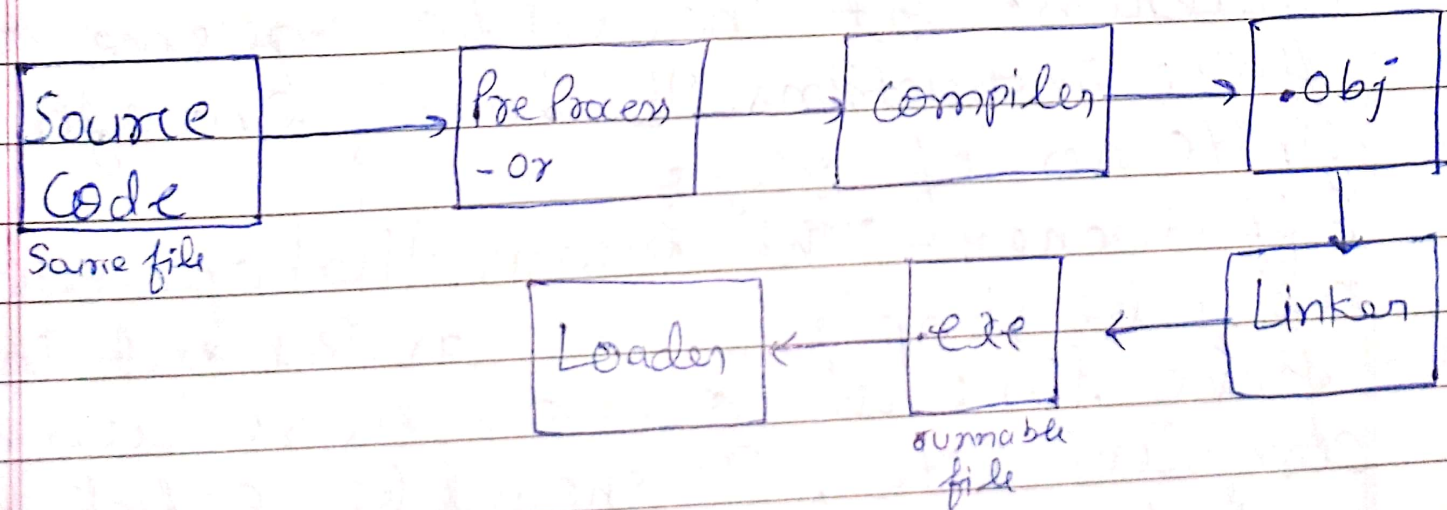 Source
Code
Source file
PreProcess
-or
Compiler
.obj
Linker
.exe
runnable
file
Loader